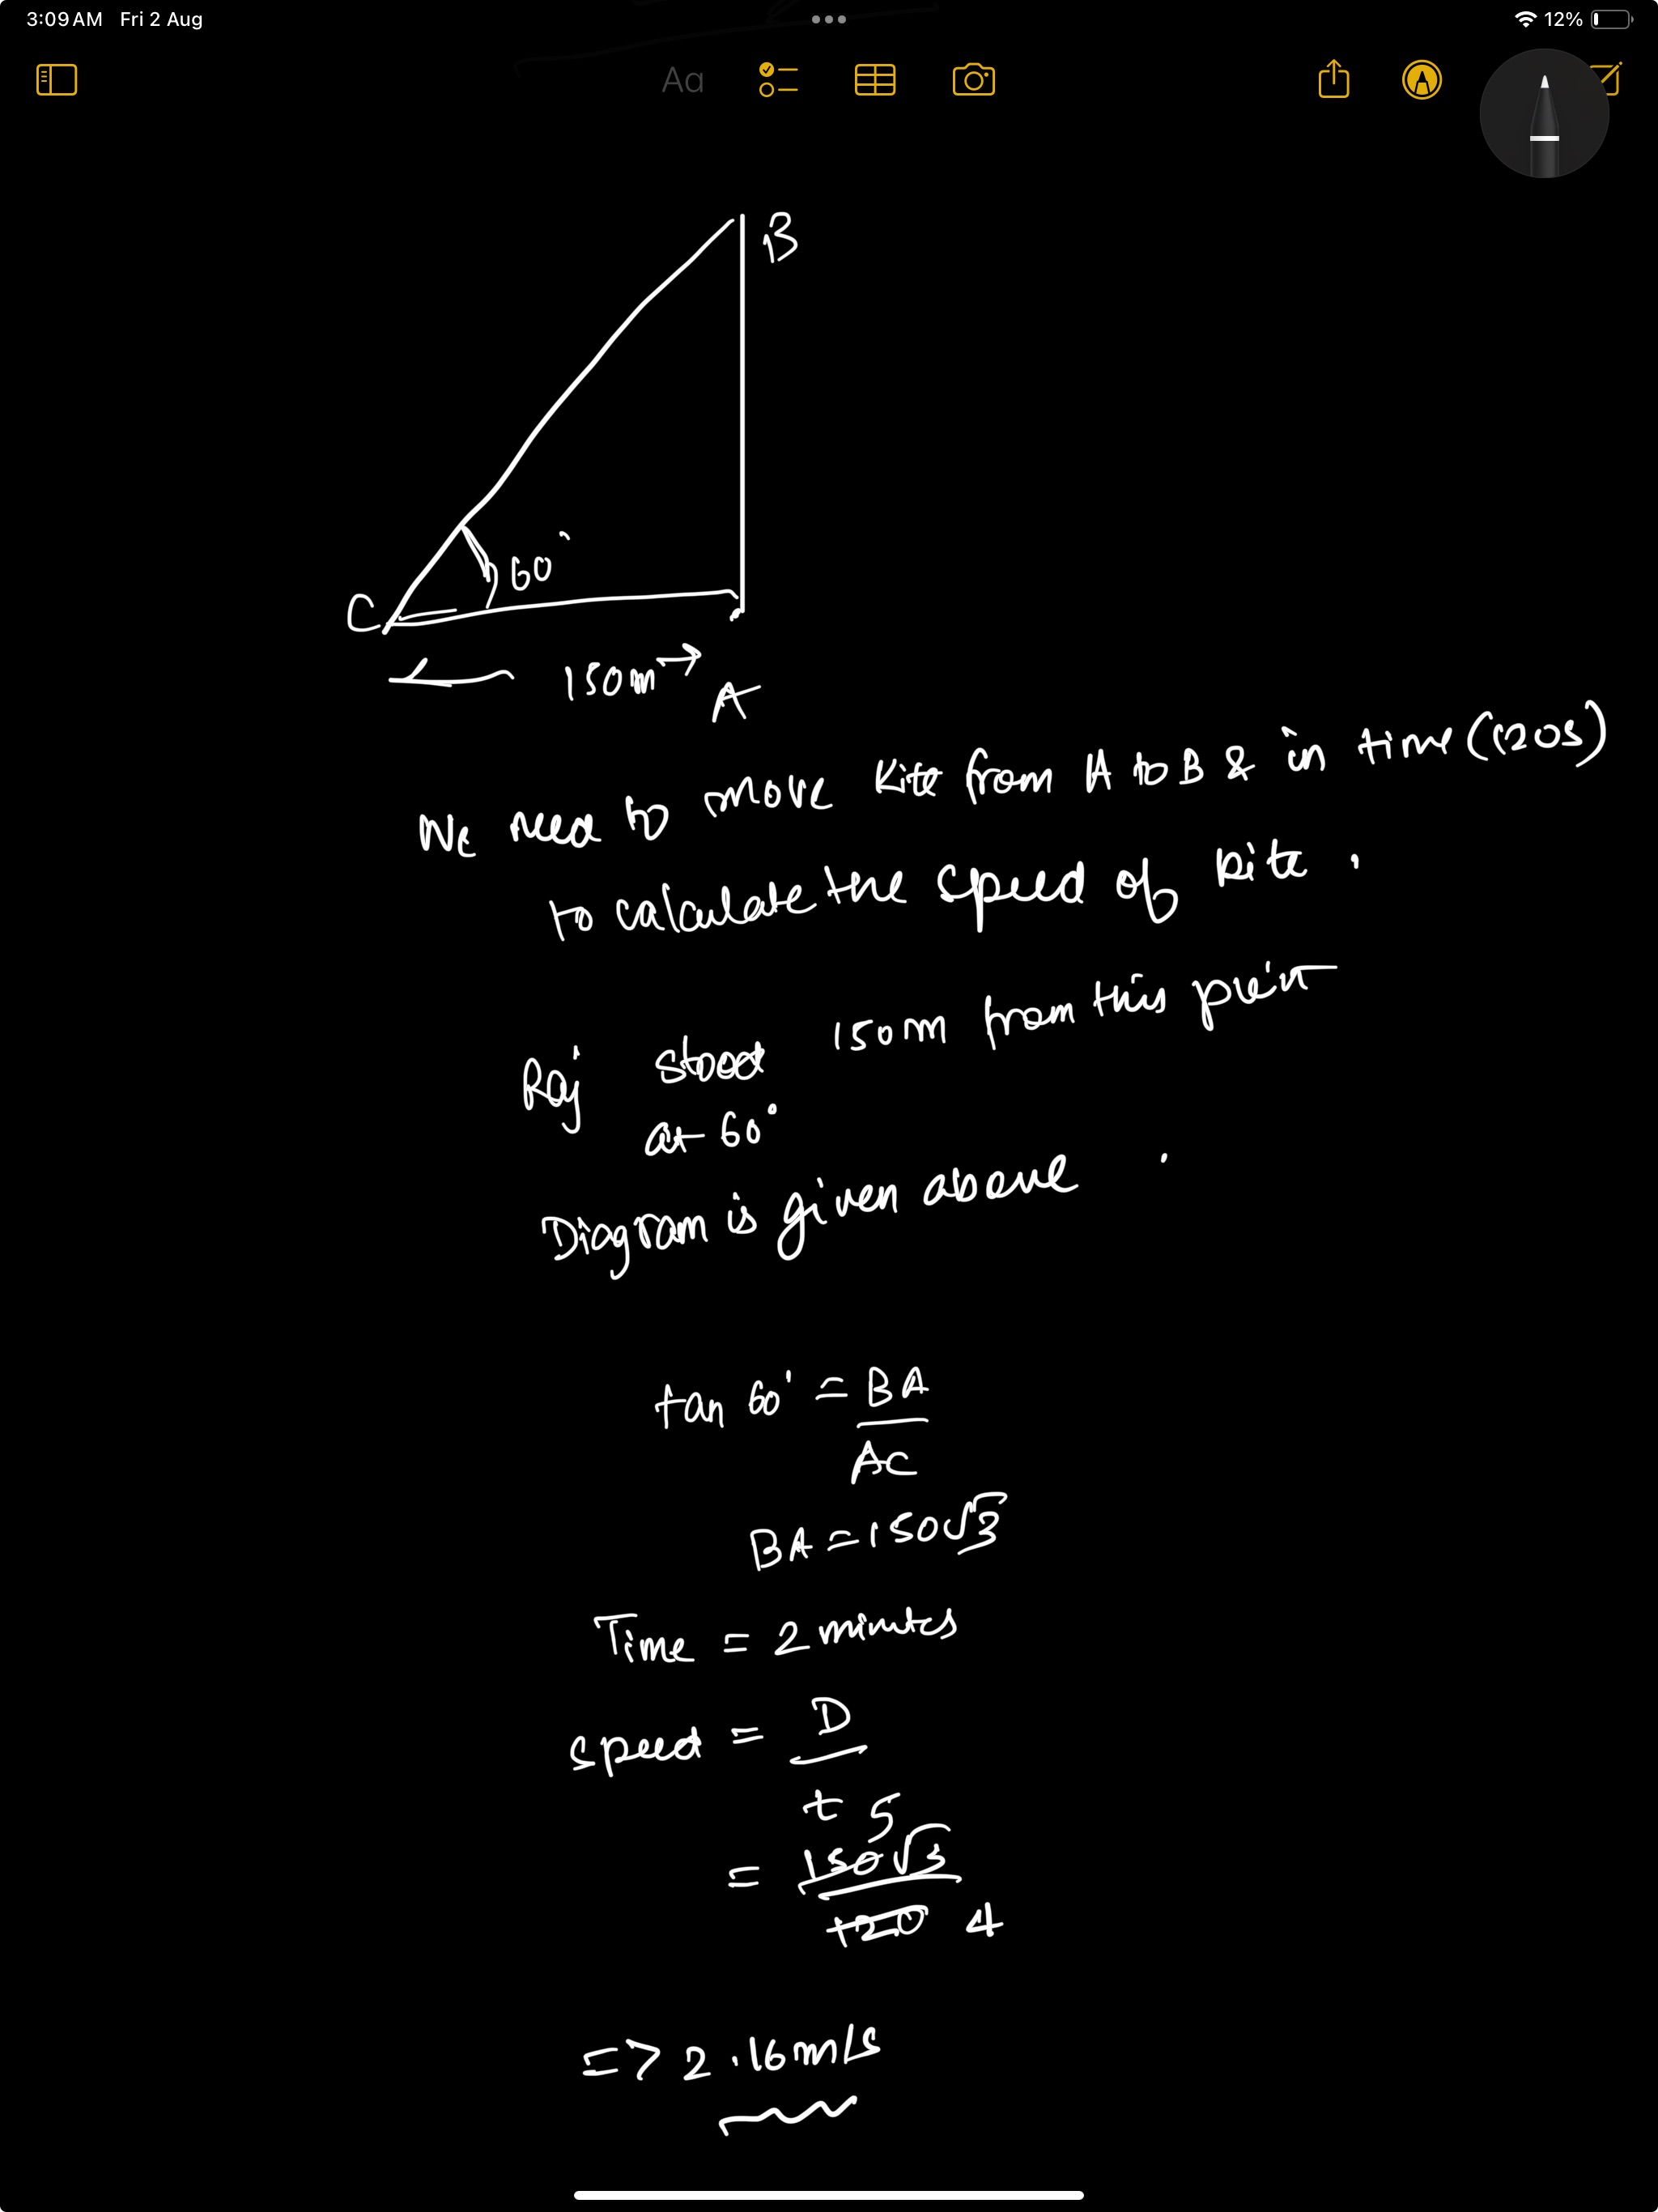 3:09 AM Fri 2 Aug
12%
Aa
B
60°
C
150m
A
We need to move Kite from A to B & in time (120s)
to calculate the speed of kite.
Raj stood 150m from this point
at 60°
Diagram is given above.
tan 60° = BA
AC
BA = 150√3
Time = 2 minutes
speed = D
t 5
= 150√3
120 4
=> 2.16m/s